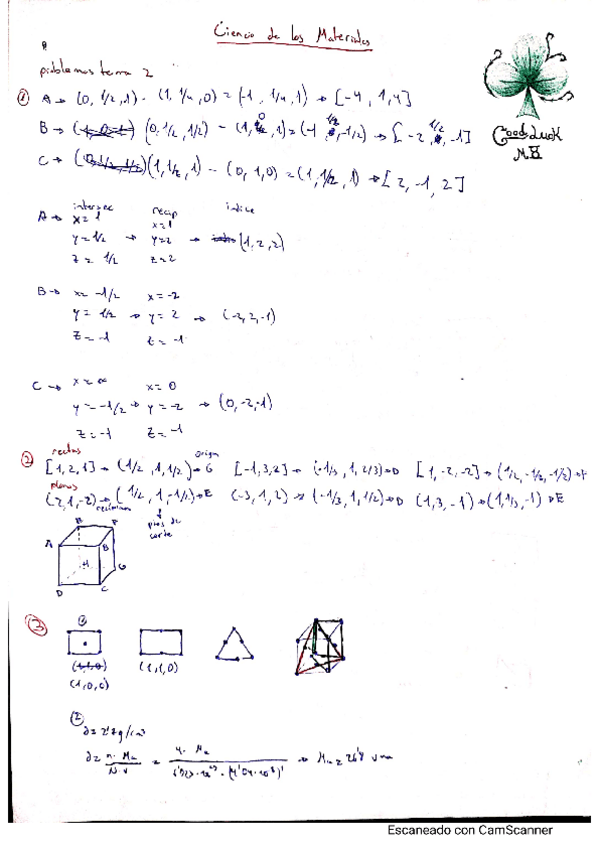 Ciencia de los Materiales
problemas tema 2
① A → (0, 1/2, 1) - (1, 1/4, 0) = (-1, 1/4, 1) → [-4, 1, 4]
B → (0, 1/2, 1/2) - (1, 0, 1) = (-1, 1/2, -1/2) → [-2, , -1]
C → (1, 1/2, 1) - (0, 1, 0) = (1, 1/2, 1) → [2, -1, 2]
Good Luck
intersec recip indice
A → x = 1 x = 1
y = 1/2 → y = 2 → (1, 2, 2)
z = 1/2 z = 2
B → x = -1/2 x = -2
y = 1/2 → y = 2 → (-2, 2, -1)
z = -1 z = -1
C → x = ∞ x = 0
y = -1/2 → y = -2 → (0, -2, -1)
z = -1 z = -1
rectas origen
② [1, 2, 1] → (1/2, 1, 1/2) → G [-1, 3, 2] → (-1/3, 1, 2/3) → D [1, -2, -2] → (1/2, -1/2, -1/2) → F
planos
(2, 1, -2) → (1/2, 1, -1/2) → E (-3, 1, 2) → (-1/3, 1, 1/2) → D (1, 3, -1) → (1, 1/3, -1) → E
ptos de corte
A B C D F G H
③ ①
(1,1,0) (1,1,0)
(1,0,0)
②
d = 2'7 g/cm³
d = n · Ma / N · V = 4 · Ma
Escaneado con CamScanner